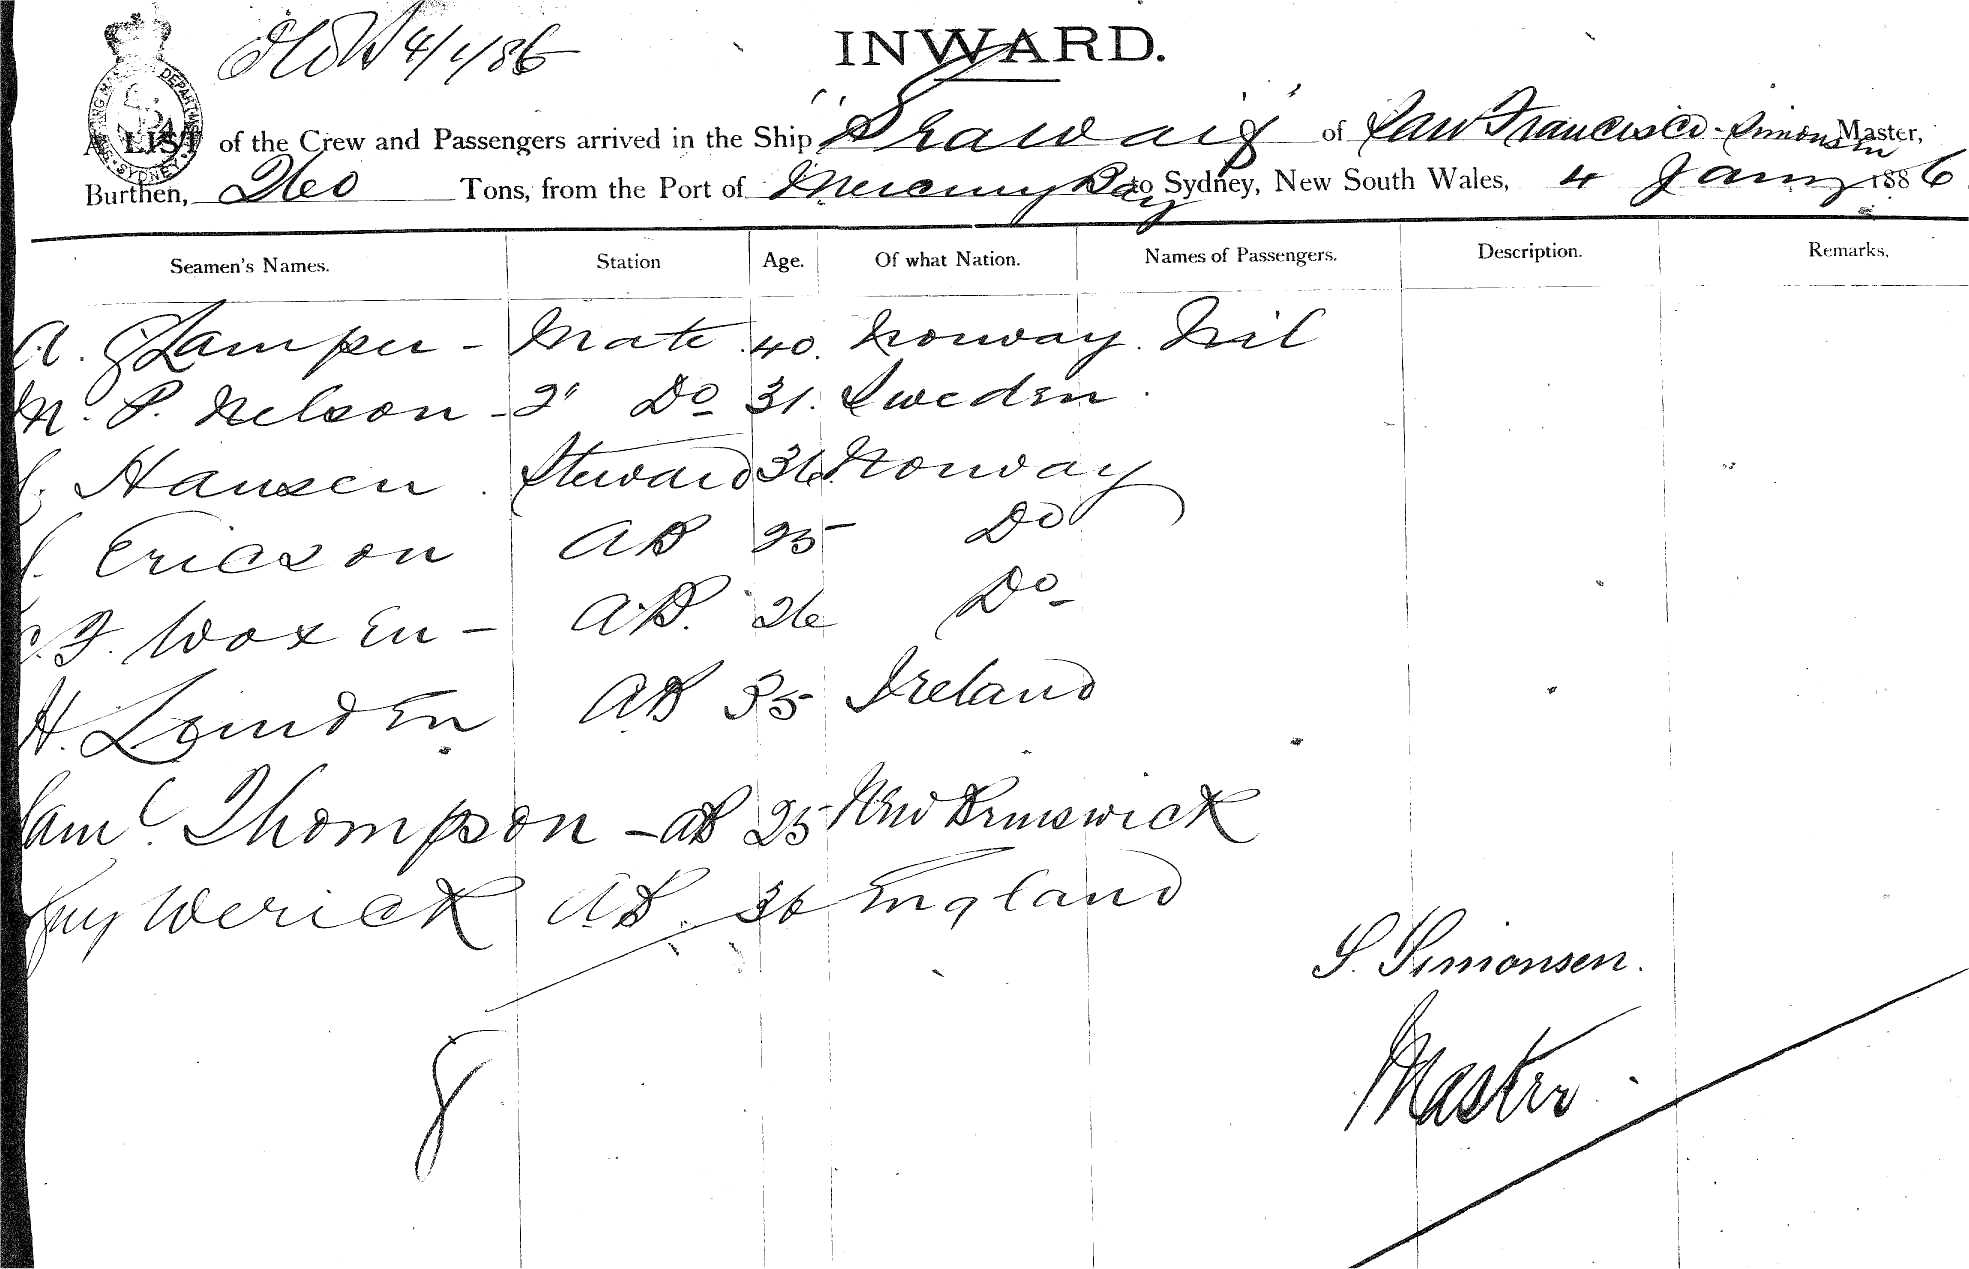 4/1/86
INWARD.
A LIST of the Crew and Passengers arrived in the Ship "Seawaif" of San Francisco - Simonsen Master,
Burthen, 260 Tons, from the Port of Mercury Bay to Sydney, New South Wales, 4 Jany 1886
Seamen's Names. Station Age. Of what Nation. Names of Passengers. Description. Remarks.
A. Mate 40. Norway. Nil
M. P. Nelson - 2' Do 31. Sweden.
Hansen. Steward 36 Norway
Ericson AB 25 Do
F. Woxen - AB. 26 Do
H. Linden AB 35 Ireland
Saml. Thompson - AB 25 New Brunswick
Guy Werick AB. 36 England
S. Simonsen.
Master.
8